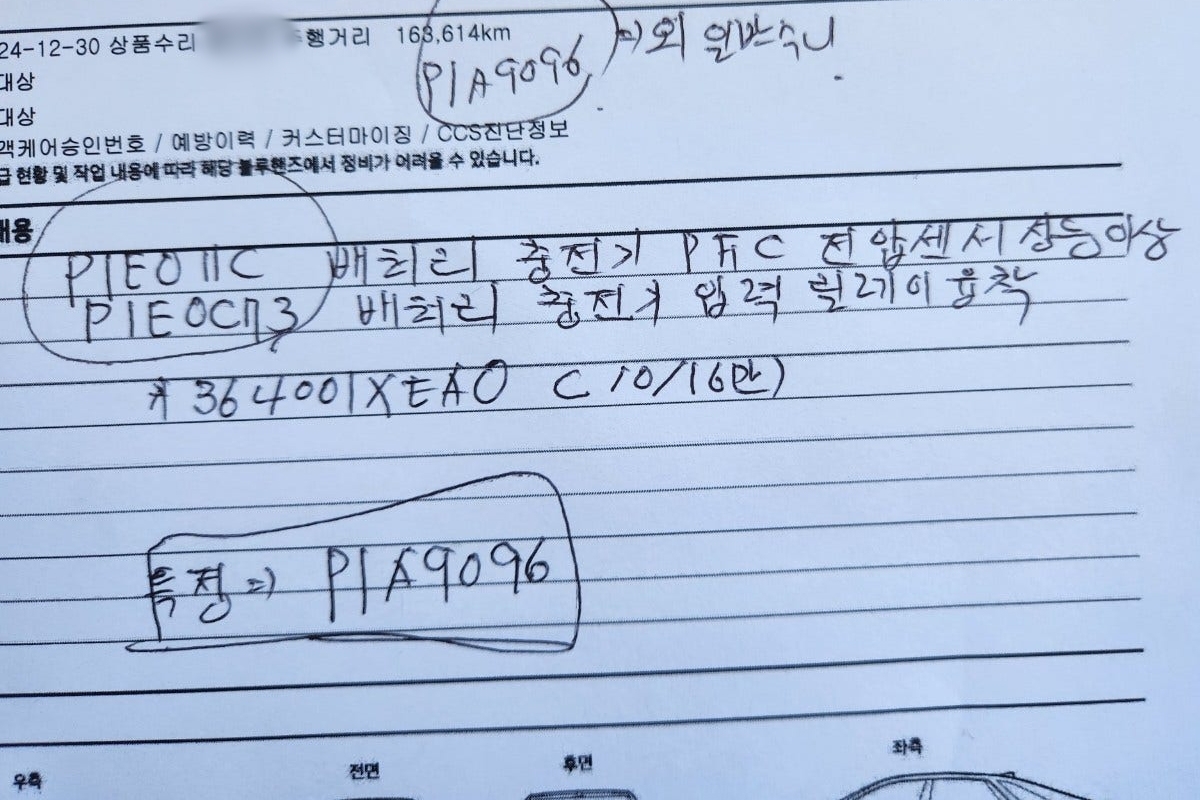 24-12-30 상품수리 주행거리 163,614km
P1A9096 ⇒ 외 일반수리
대상
대상
객케어승인번호 / 예방이력 / 커스터마이징 / CCS진단정보
급 현황 및 작업 내용에 따라 해당 블루핸즈에서 정비가 어려울 수 있습니다.
내용
P1E011C 배터리 충전기 PFC 전압센서 상등이상
P1E0C73 배터리 충전기 입력 릴레이 융착
* 36400IXEA0 (10/16만)
특정 ⇒ P1A9096
우측 전면 후면 좌측